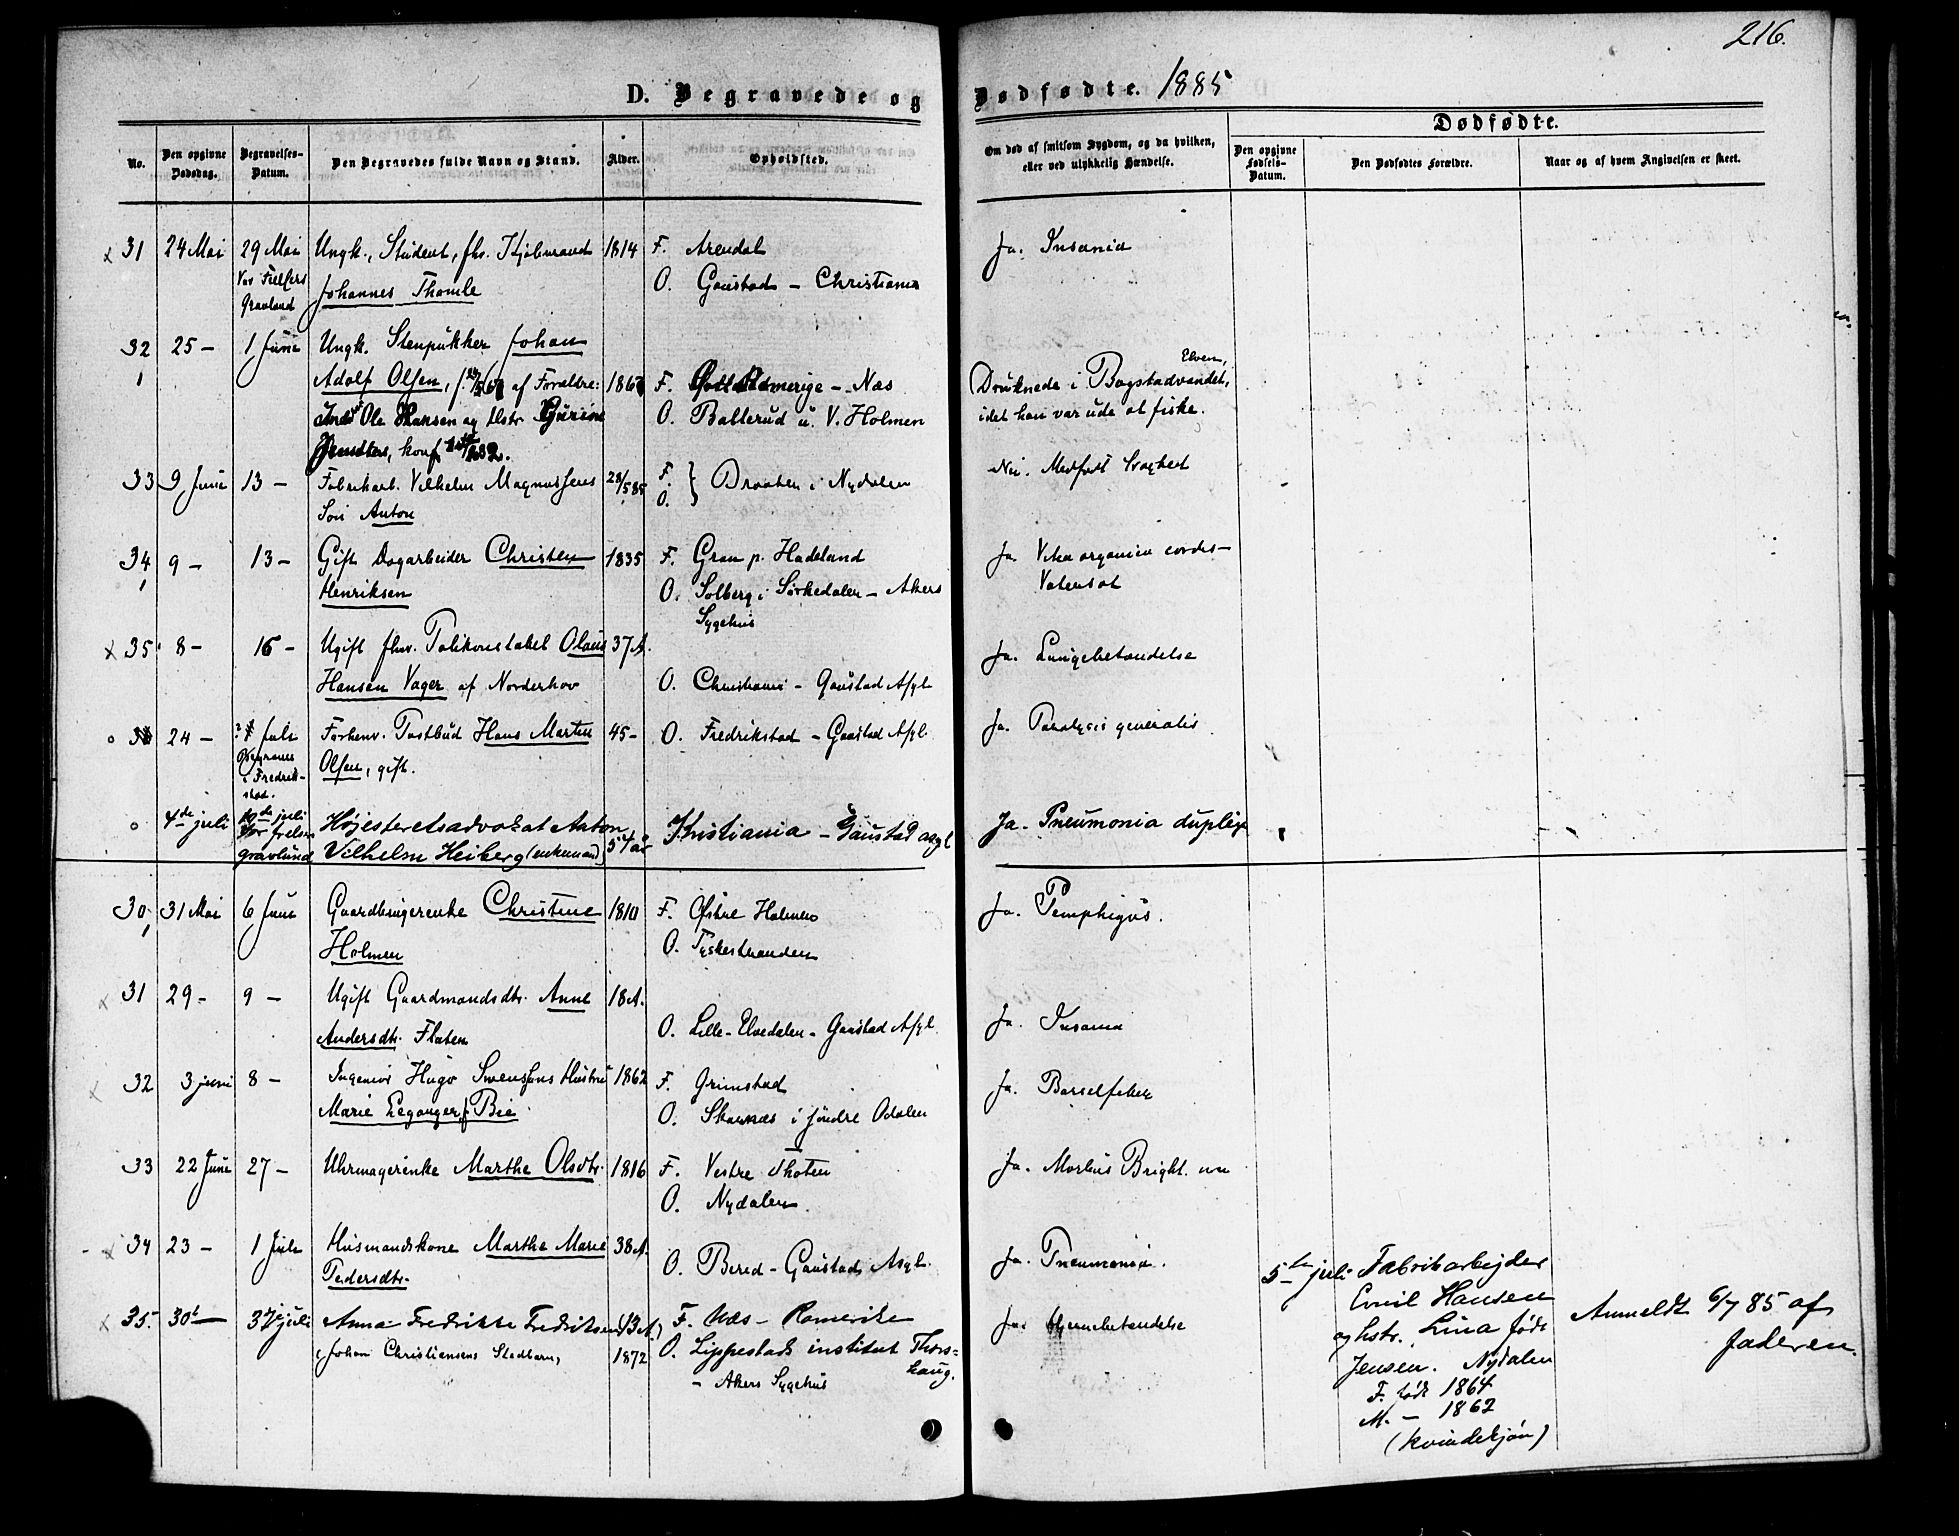 216.
D. Begravede og Dødfødte. 1885
Dødfødte.
No.
Den opgivne Dødsdag.
Begravelses-Datum.
Den Begravedes fulde Navn og Stand.
Alder.
Opholdsted.
Om død af smitsom Sygdom, og da hvilken, eller ved ulykkelig Hændelse.
Den opgivne Fødsels-Datum.
Den Dødfødtes Forældre.
Naar og af hvem Angivelsen er skeet.
31 24 Mai 29 Mai Ungk., Student, fhv. Kjøbmand 1814 F. Arendal Ja. Insania
Vor Frelsers Gravlund Johannes Thomle O. Gaustad - Christiania
32 25 - 1 Juni Ungk. Stenpukker Johan
Adolf Olsen, af Forældre: F. Romerige - Næs Druknede i Bogstadvandet, Elven,
Ole Hansen og Hstr. O. Ballerud u. V. Holmen idet han var ude at fiske.
konf.
33 9 Juni 13 - Fabrikarb. Vilhelm Magnussens 28/5 85 F. O. } Braaten i Nydalen Nei. Medfødt Svaghed
Søn Anton
34 9 - 13 - Gift Dagarbeider Christen 1835 F. Gran p. Hadeland Ja. Vitium organicum cordis -
Henriksen O. Solberg i Sørkedalen - Akers
Sygehus
35 8 - 16 - Ugift fhv. Politikonstabel Olaus 37 A. Ja. Lungebetændelse
Hansen Vager af Norderhov O. Christiania - Gaustad Asyl
24 - Juli Forhenv. Postbud Hans Martin 45 - O. Fredrikstad - Gaustad Asyl Ja. Paralysis generalis
Begraven i Fredrik-stad. Olsen, gift.
4de juli juli Højesteretsadvokat Anton Kristiania - Gaustad asyl Ja. Pneumonia duplex
Vor frelsers gravlund Vilhelm Heiberg (enkemand) 54 aar
30 31 Mai 6 Juni Gaardbrugerenke Christine 1810 F. Østre Holmen Ja. Pemphigus.
Holmen O. Tyskestranden
31 29 - 9 - Ugift Gaardmandsdtr. Anne 18 A.
Andersdtr. Flaten O. Lille-Elvedalen - Gaustad Asyl Ja. Insania
32 3 juni 8 - Ingeniør Hugo Svensens Hustru 1862 F. Grimstad Ja. Barselfeber
Marie Leganger, f. Bie O. Skarnæs i søndre Odalen
33 22 Juni 27 - Uhrmagerenke Marthe Olsdtr. 1816 F. Vestre Thoten Ja. Morbus Brightii
O. Nydalen
34 23 - 1 Juli Husmandskone Marthe Marie 38 A. Ja. Pneumonia.
Pedersdtr. O. - Gaustad Asyl.
35. 30te 3 juli Anna Fredrikke Fredriksen 13 A. F. Næs - Romerike Ja. Hjernebetændelse
Johan Christiansens Stedbarn, 1872 O. Lippestads institut Thors-haug.
- Akers Sygehus
5te juli Fabrikarbejder
Emil Hansen
og hstr. Lina født
Jensen. Nydalen
F. født 1864
M. - 1862
(kvindekjøn)
Anmeldt 6/7 85 af
faderen.